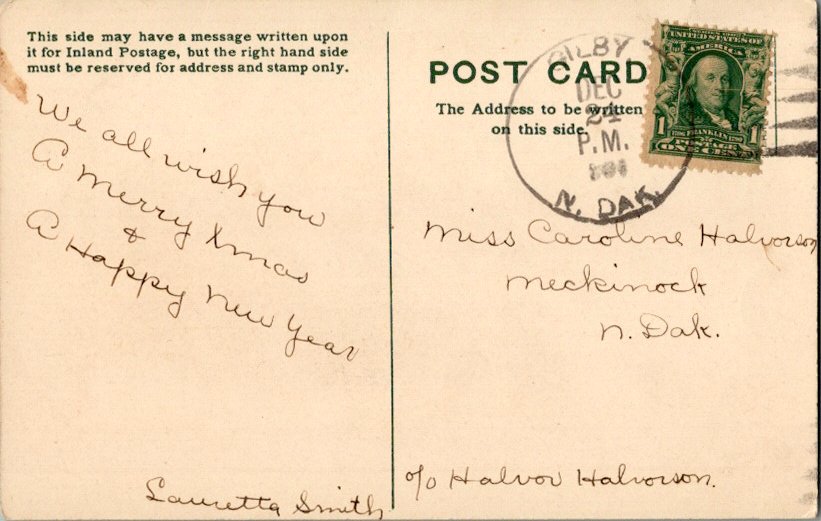 This side may have a message written upon
it for Inland Postage, but the right hand side
must be reserved for address and stamp only.
We all wish you
A Merry Xmas
&
A Happy New Year
Lauretta Smith
POST CARD
The Address to be written
on this side.
GILBY
DEC
24
P.M.
N. DAK.
UNITED STATES OF
AMERICA
1 1706 FRANKLIN 1790 1
POSTAGE
ONE CENT
Miss Caroline Halvorson
Meckinock
N. Dak.
c/o Halvor Halvorson.